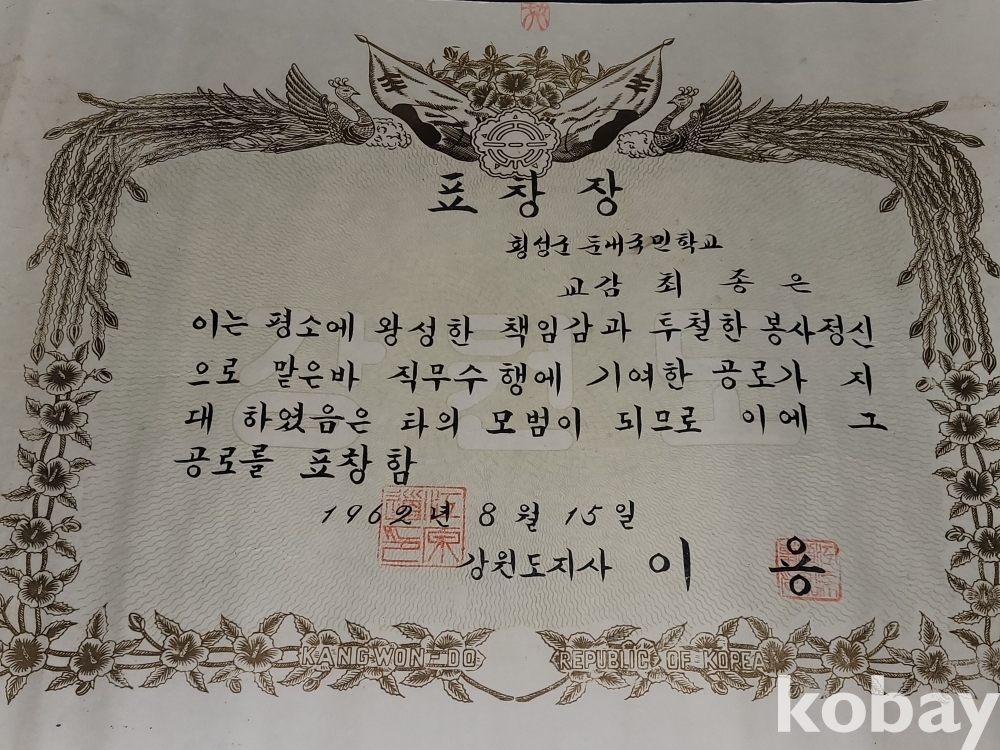 표창장
횡성군 둔내국민학교
교감 최종은
이는 평소에 왕성한 책임감과 투철한 봉사정신
으로 맡은바 직무수행에 기여한 공로가 지
대 하였음은 타의 모범이 되므로 이에 그
공로를 표창함
1962년 8월 15일
강원도지사 이용
강원도
KANGWON-DO REPUBLIC OF KOREA
kobay